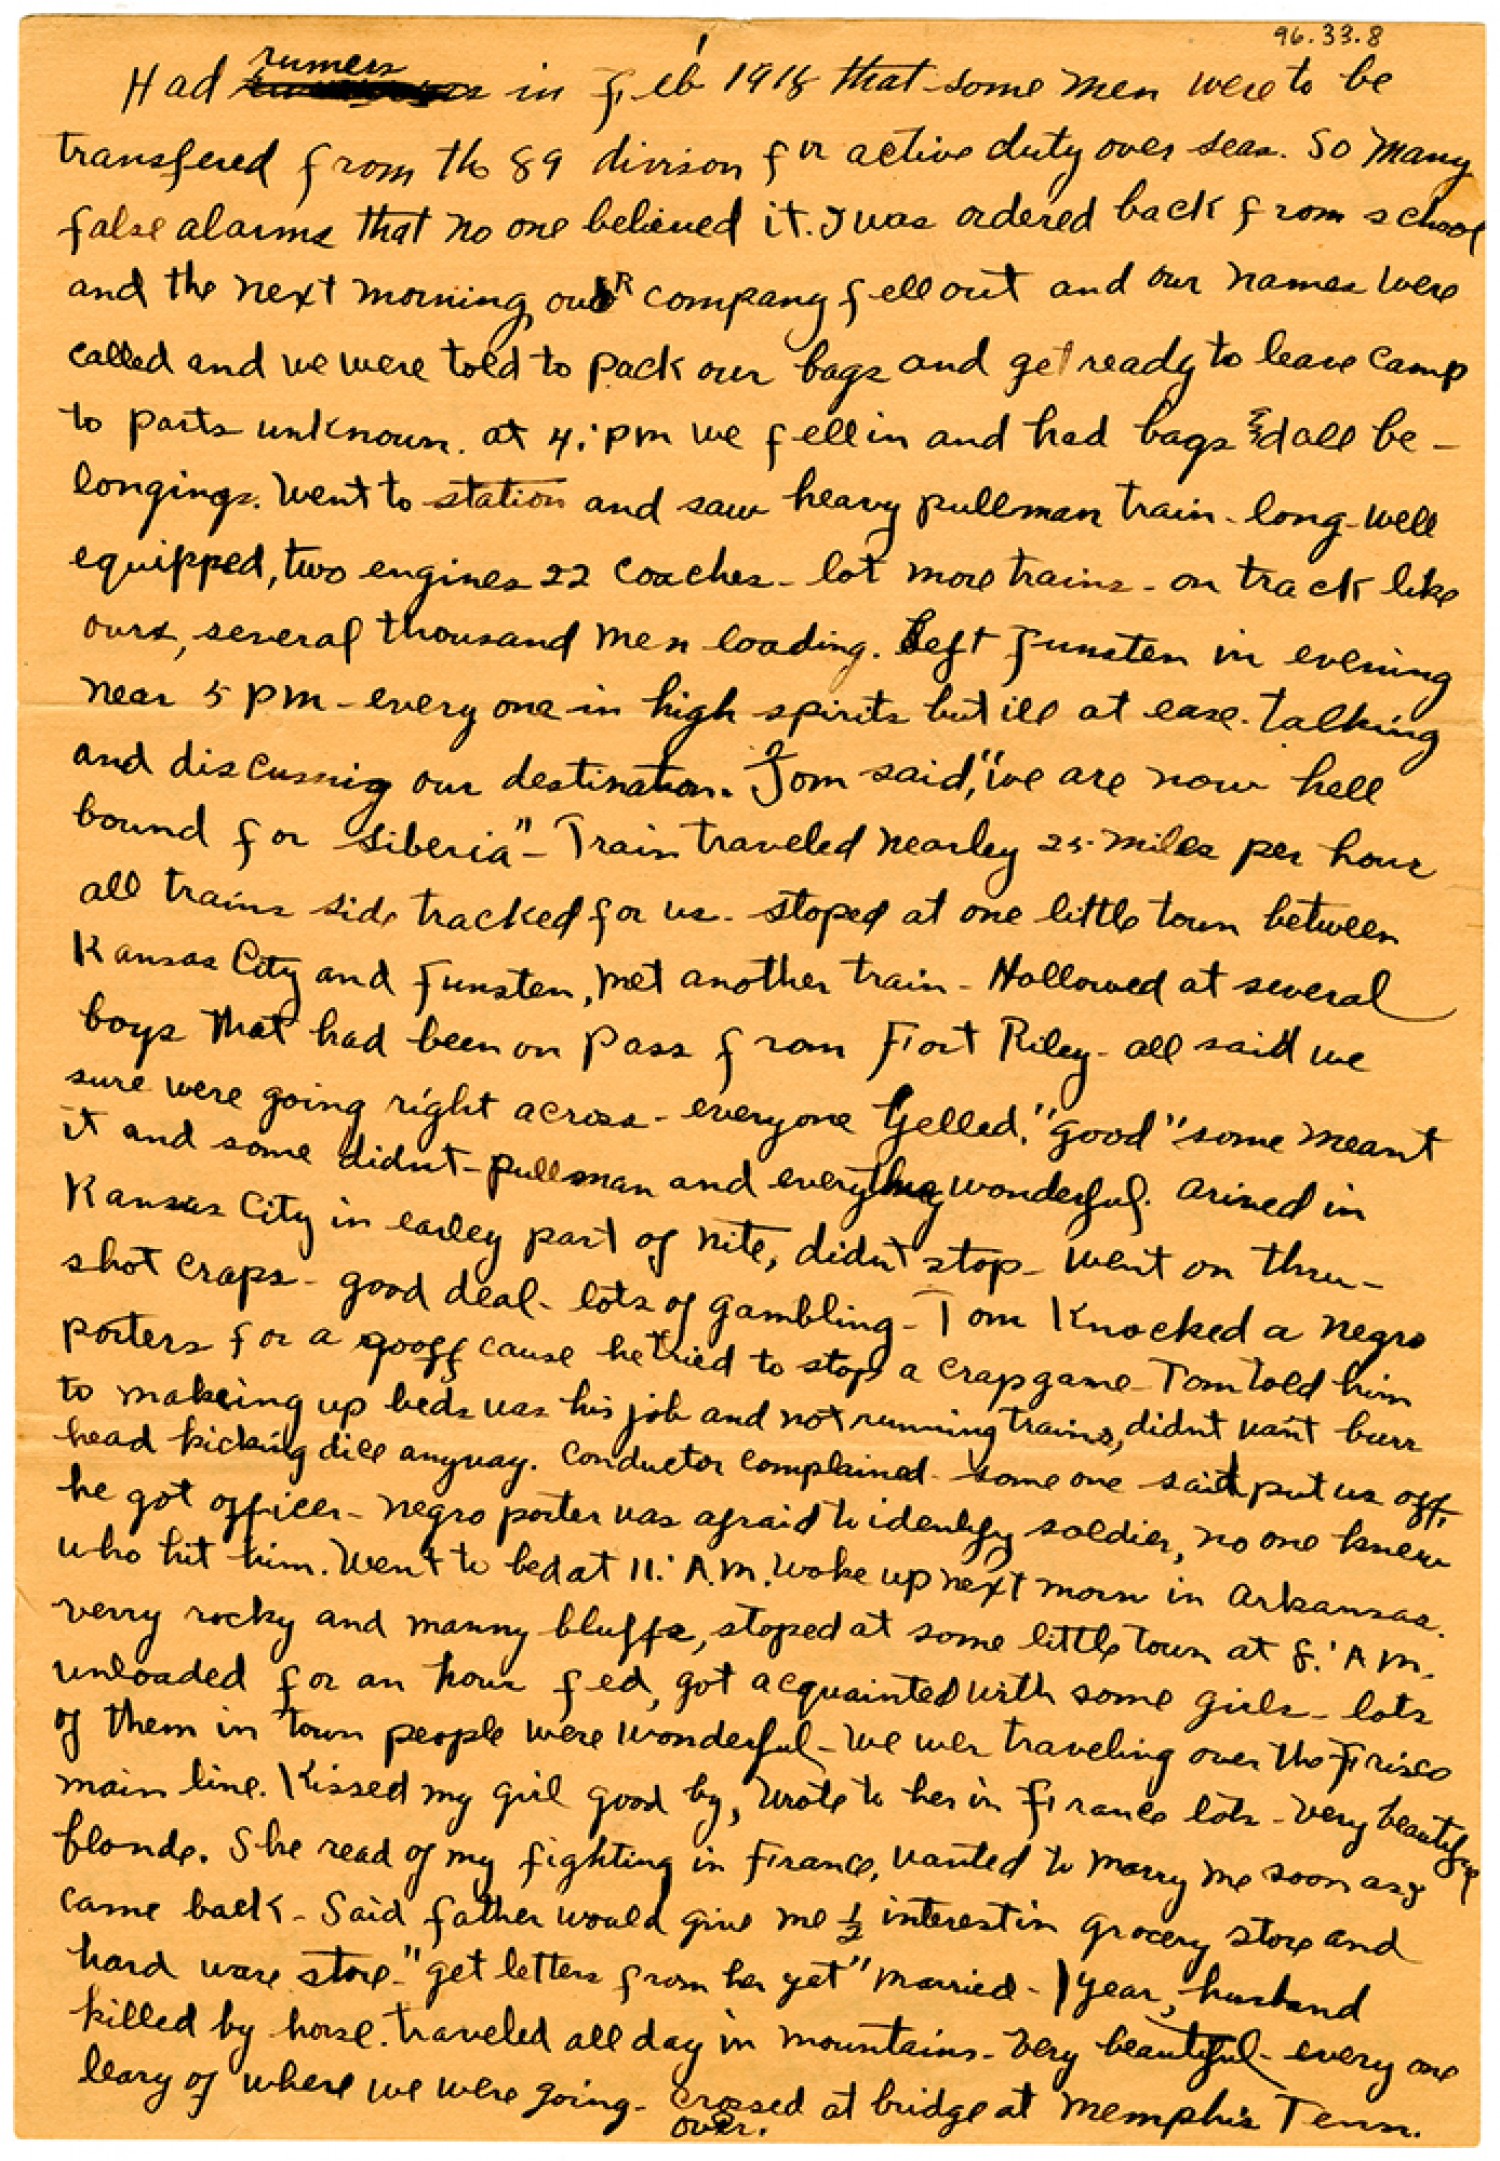 96.33.8
Had rumers in Feb 1918 that some men were to be
transfered from the 89 divison for active duty over seas. So many
false alarms that no one believed it. I was ordered back from school
and the next morning, our company fell out and our names were
called and we were told to pack our bags and get ready to leave camp
to parts unknown. at 4:pm we fell in and had bags & all be-
longings. Went to station and saw heavy pullman train - long - well
equipped, two engines 22 coaches - lot more trains - on track like
ours, several thousand men loading. Left Funsten in evening
near 5 pm - every one in high spirits but ill at ease. talking
and discussing our destination. Tom said, "We are now hell
bound for Siberia" - Train traveled nearley 25 miles per hour
all trains side tracked for us - stoped at one little town between
Kansas City and Funsten, met another train - Hollowed at several
boys that had been on pass from Fort Riley - all said we
sure were going right across - everyone yelled, "good" some meant
it and some didnt - pullman and everything wonderful. arived in
Kansas City in earley part of nite, didnt stop - went on thru -
shot craps - good deal - lots of gambling - Tom Knocked a negro
porters for a gooff cause he tried to stop a crap game - Tom told him
to makeing up beds was his job and not running trains, didnt want burr
head kicking dice anyway. Conductor complained - some one said put us off,
he got officer - negro porter was afraid to identify soldier, no one knew
who hit him. Went to bed at 11:A.M. woke up next morn in Arkansas.
verry rocky and manny bluffs, stoped at some little town at 8:AM.
unloaded for an hour fed, got acquainted with some girls - lots
of them in town people were wonderful - we wer traveling over the Frisco
main line. Kissed my girl good by, wrote to her in France lots - very beautiful
blonde. She read of my fighting in France, wanted to marry me soon as I
came back - Said father would give me ½ interest in grocery store and
hard ware store - "get letters from her yet" married - 1 year, husband
killed by horse. traveled all day in mountains - very beautiful - every one
leary of where we were going - crossed at bridge at Memphis Tenn.
over.